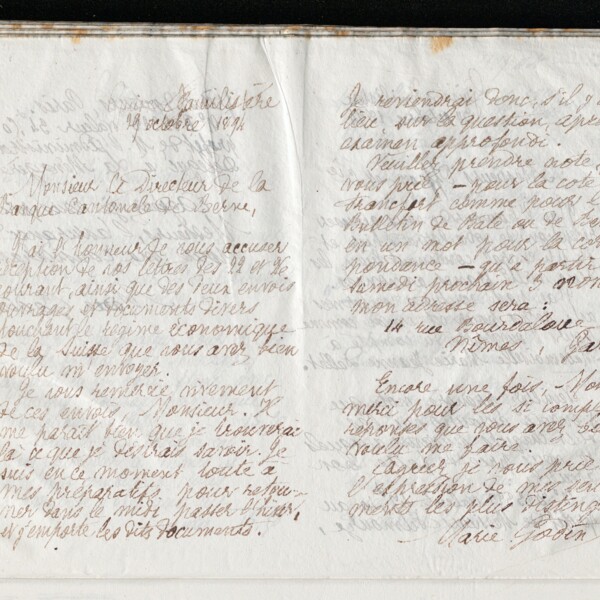 Familistère
29 octobre 1894
Monsieur le Directeur de la
Banque Cantonale de Berne,
J'ai l'honneur de vous accuser
réception de vos lettres des 22 et 26
courant, ainsi que des deux envois
ouvrages et documents divers
touchant le régime économique
de la Suisse que vous avez bien
voulu m'envoyer.
Je vous remercie vivement
de ces envois, Monsieur. Il
me paraît bien que je trouverai
là ce que je désirais savoir. Je
suis en ce moment toute à
mes préparatifs pour retour-
ner dans le midi passer l'hiver,
et j'emporte les dits documents.
Je reviendrai donc, s'il y a
lieu sur la question, après
examen approfondi.
Veuillez prendre note
vous prie – pour la cote
transfert comme pour le
Bulletin de Bâle ou de
en un mot pour la corres
pondance – qu'à partir
samedi prochain 3 nov
mon adresse sera :
14 rue Bourdaloue
Nîmes Gar
Encore une fois, Mon
merci pour les si compl
réponses que vous avez bi
voulu me faire.
Agréez je vous prie
l'expression de mes sen
ments les plus disting
Marie Godin